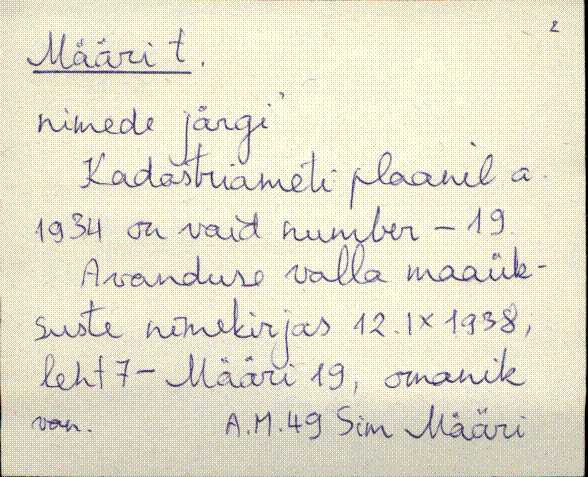 2
Määri t.
nimede järgi"
Kadastriameti plaanil a.
1934 on vaid number - 19.
Avanduse valla maaük-
suste nimekirjas 12.IX 1938,
leht 7 - Määri 19, omanik
van. A.M.49 Sim Määri